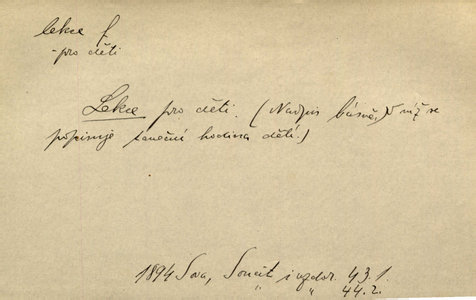 lekce f.
- pro děti
Lekce pro děti. (Nadpis básně, v níž se
popisuje taneční hodina dětí.)
1894 Sova, Soucit i vzdor. 43.1.
" " 44.2.